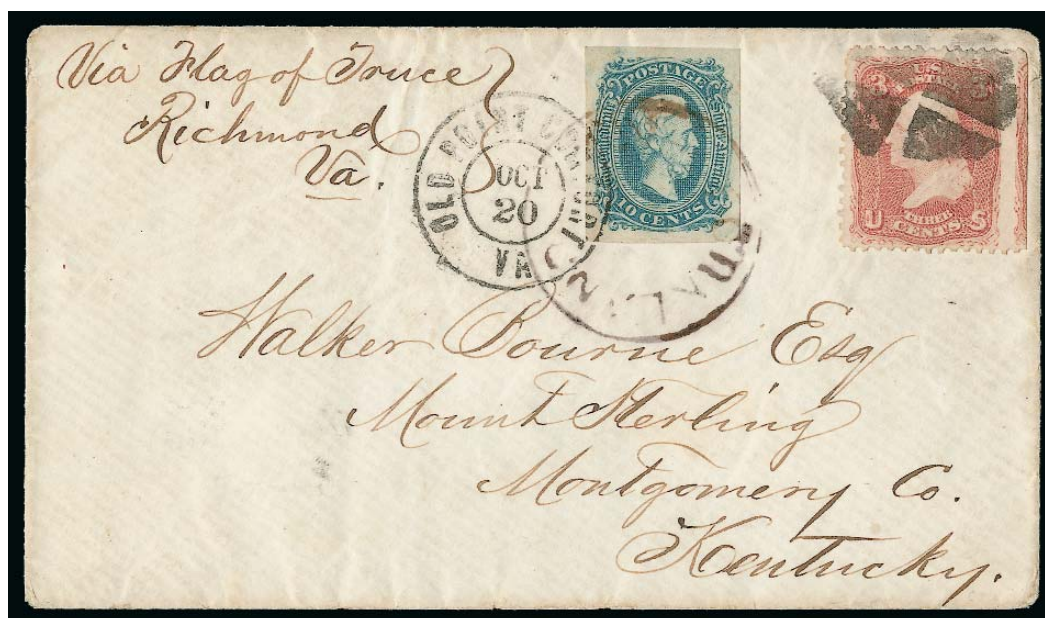 Via Flag of Truce
Richmond
Va.
OLD POINT COMFORT
OCT
20
VA
POSTAGE
Confederate States of America
10 CENTS
U S
THREE
CENTS
Walker Bourne Esq
Mount Sterling
Montgomery Co.
Kentucky.